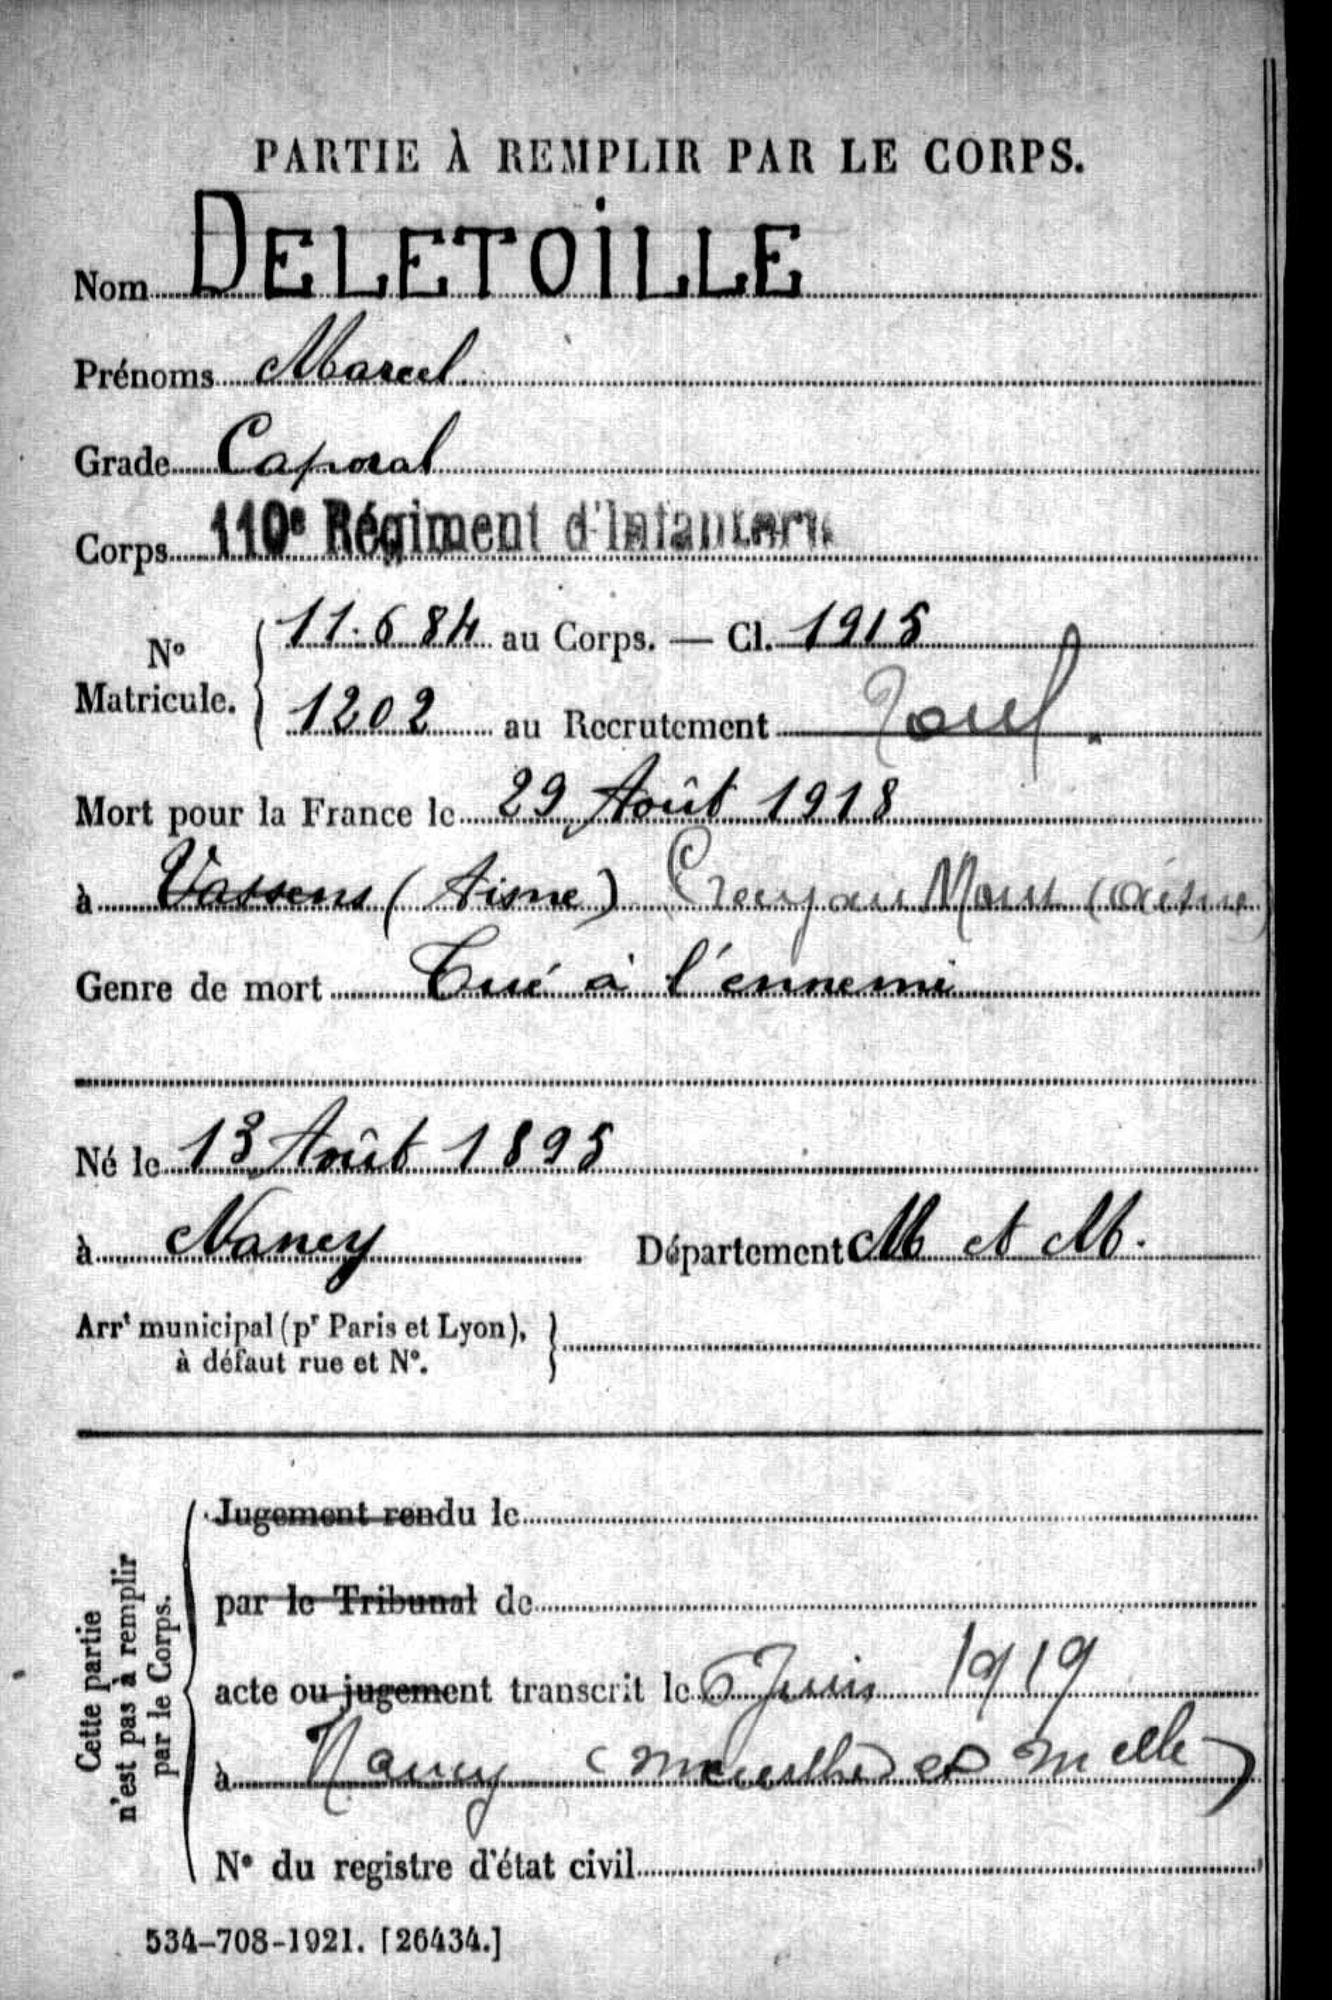 PARTIE À REMPLIR PAR LE CORPS.
Nom DELETOILLE
Prénoms Marcel
Grade Caporal
Corps 110e Régiment d'Infanterie
No Matricule. { 11.684 au Corps. — Cl. 1915
1202 au Recrutement Toul.
Mort pour la France le 29 Août 1918
à Vassens (Aisne) Crecy au Mont (Aisne)
Genre de mort Tué à l'ennemi
Né le 13 Août 1895
à Nancy Département M et M.
Arrt municipal (pr Paris et Lyon), }
à défaut rue et No.
Cette partie
n'est pas à remplir
par le Corps.
Jugement rendu le
par le Tribunal de
acte ou jugement transcrit le 6 Juin 1919
à Nancy (Meurthe et Melle)
No du registre d'état civil
534-708-1921. [26434.]